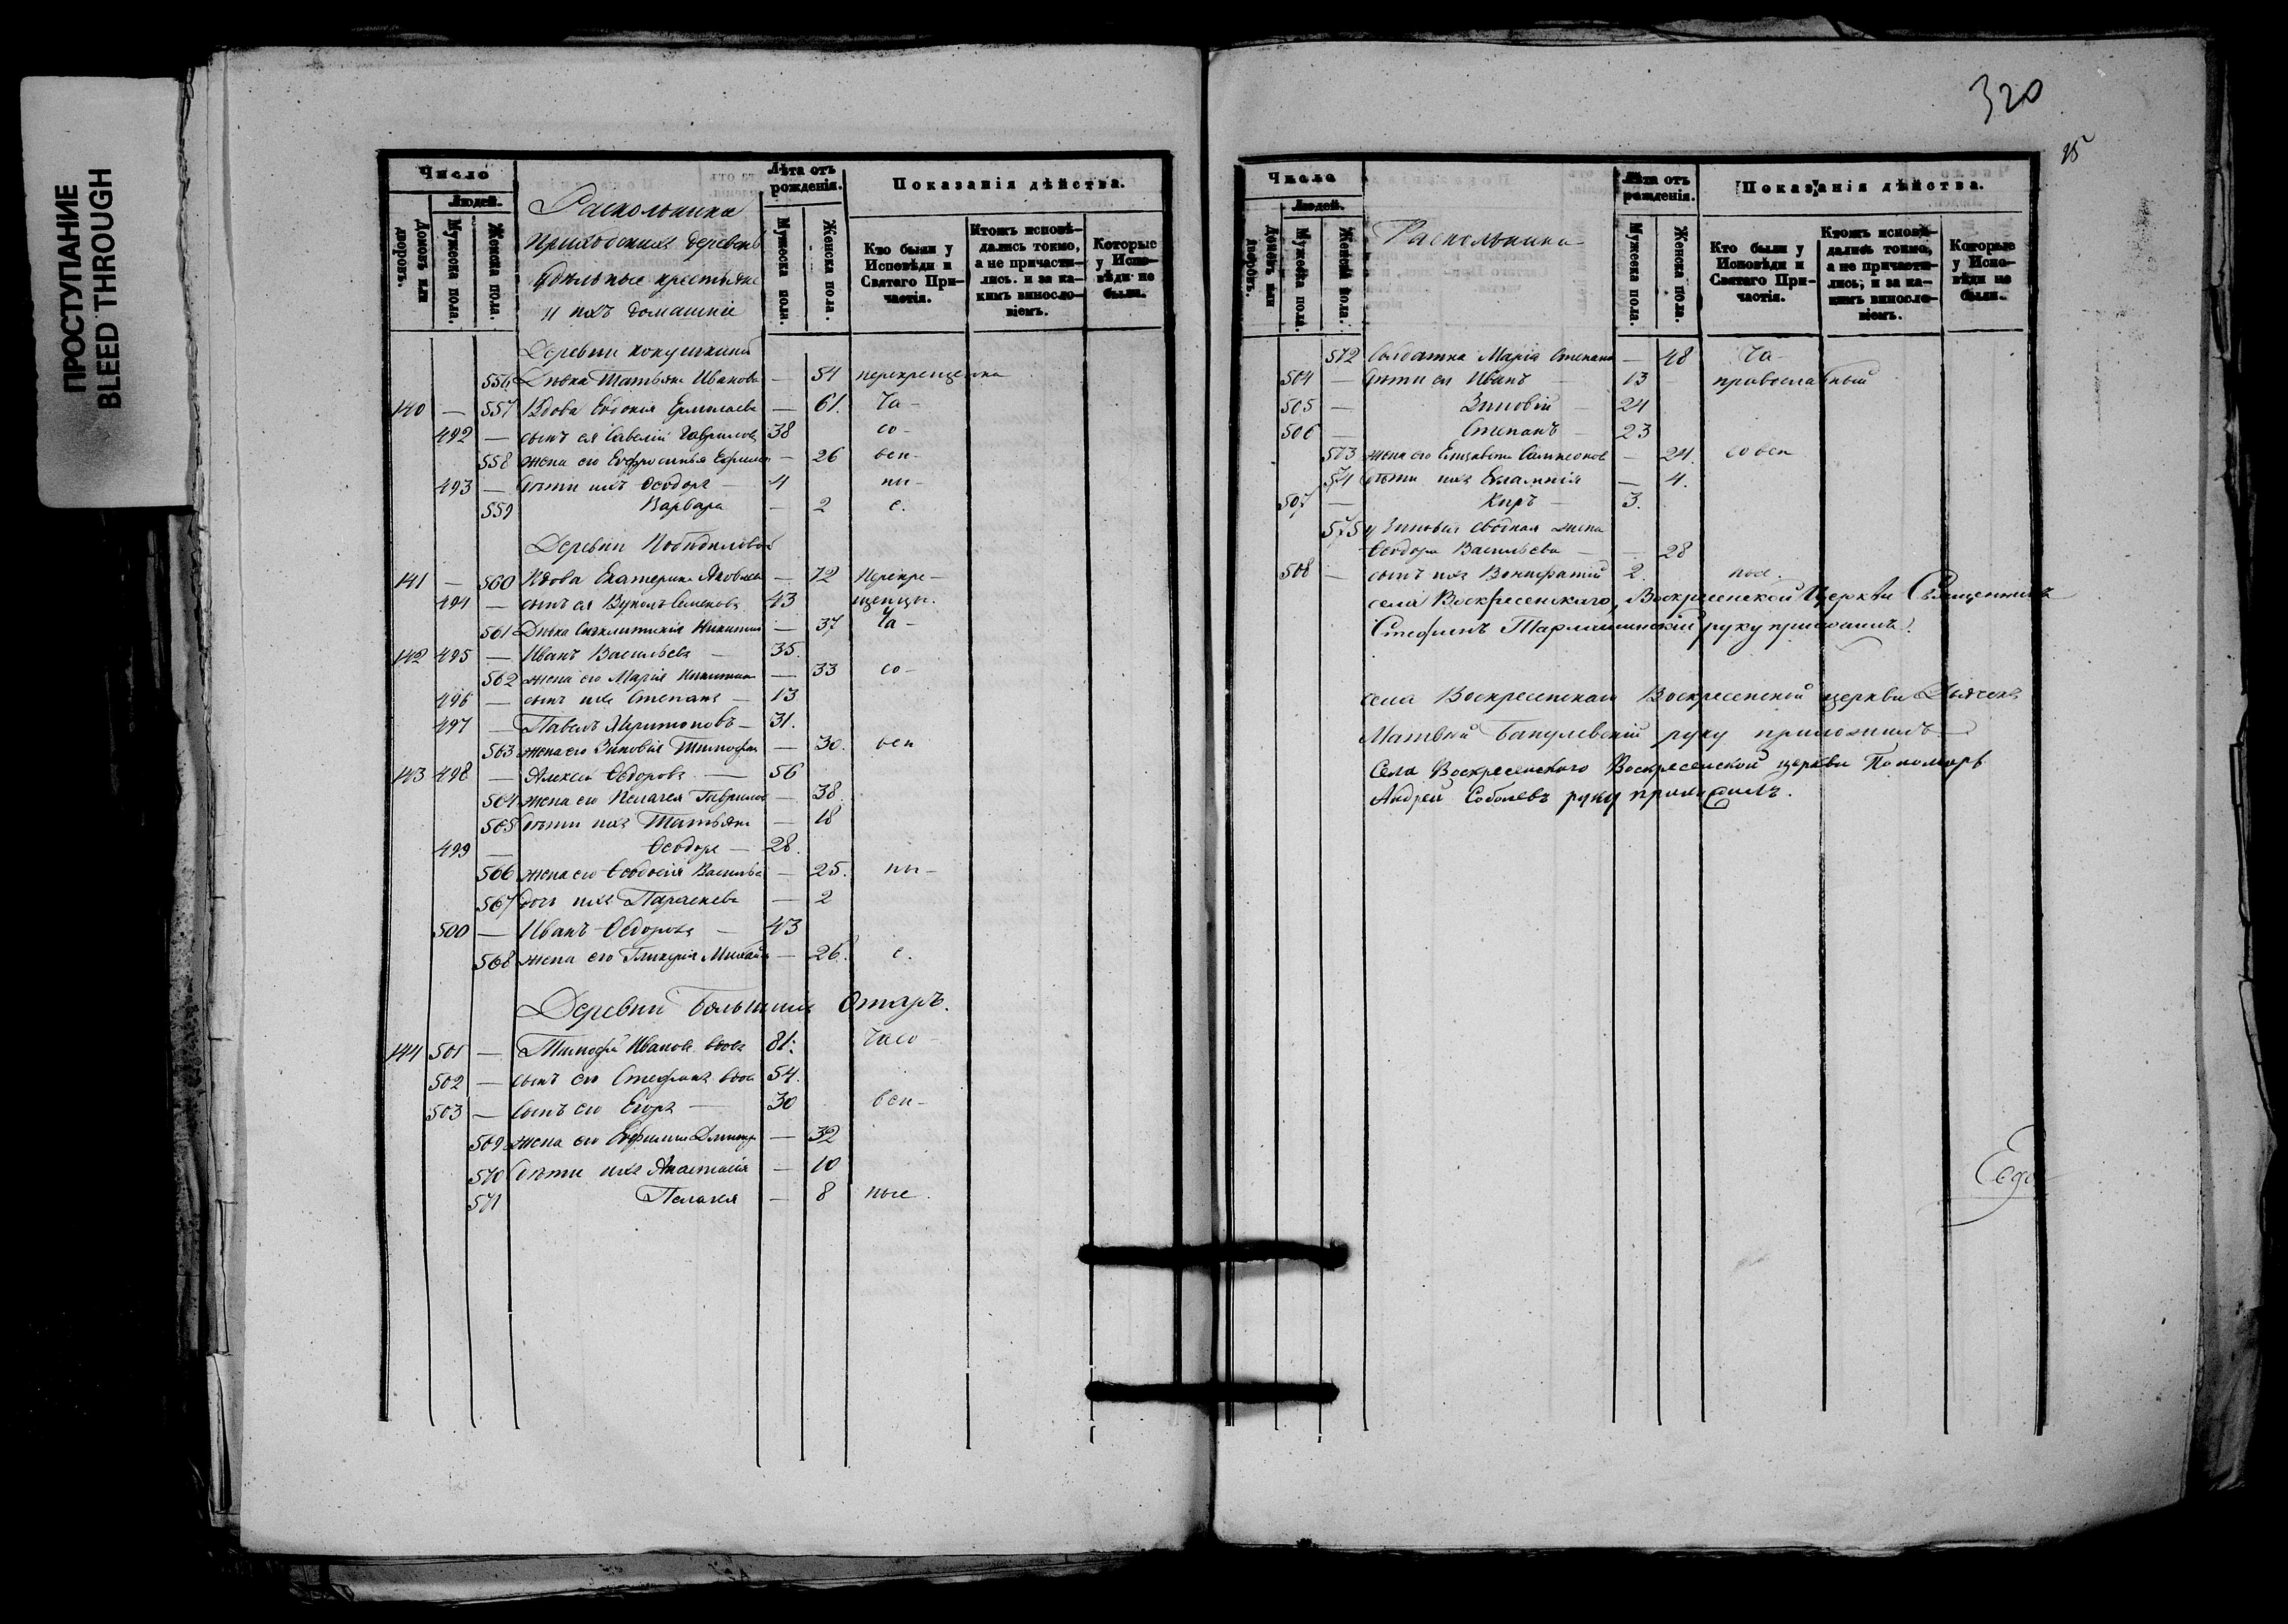 ПРОСТУПАНИЕ
BLEED THROUGH
Число
Людей.
Домовъ или дворовъ.
Мужеска пола.
Женска пола.
Раскольники
приходскихъ деревень
крестьяне
и ихъ домашніе
Лѣта отъ рожденія.
Мужеска пола.
Женска пола.
Показанія дѣйства.
Кто были у Исповѣди и Святаго При-частія.
Ктожъ исповѣ-дались токмо, а не причасти-лись. и за ка-кимъ винносло-віемъ.
Которые у Испо-вѣди не были.
Деревни
556 Дѣвка Татьяна Иванова — 54 перекрещенка
140 — 557 Вдова Евдокія Ермолаева — 61. Ча-
492 — сынъ ея Савелій Гавриловъ 38 со-
558 жена его Евфросинья — 26 вен-
493 — дѣти ихъ Ѳеодоръ — 4 ны-
559 Варвара — 2 е.
Деревни
141 — 560 Вдова Екатерина Яковлева — 72 Перекре-
494 — сынъ ея Вуколъ Семеновъ 43 щенцы.
561 Дѣвка Синклитикія Никитина — 37 Ча-
142 495 — Иванъ Васильевъ — 35.
562 жена его Марія Никитина — 33 со-
496 — сынъ ихъ Степанъ — 13
497 — Павелъ Харитоновъ — 31.
563 жена его Зиновія Тимофеева — 30. вен
143 498 — Алексій Ѳедоровъ — 56
564 жена его Пелагея Гаврилова — 38.
565 дѣти ихъ Татьяна — 18
499 — Ѳеодоръ — 28.
566 жена его Ѳеодосія Васильева — 25. ны-
567 дочь ихъ Параскева — 2
500 — Иванъ Ѳедоровъ — 43
568 жена его Гликерія Михайл — 26. е.
Деревни Большихъ Отаръ.
144 501 — Тимофей Ивановъ вдовъ 81. Часо-
502 — сынъ его Стефанъ вдов 54.
503 — сынъ его Егоръ — 30 вен-
569 жена его Евфимія Дмитр — 32
570 дѣти ихъ Анастасія — 10
571 Пелагея — 8 ные.
320
Число
Людей.
Домовъ или дворовъ.
Мужеска пола.
Женска пола.
Раскольники
Лѣта отъ рожденія.
Мужеска пола.
Женска пола.
Показанія дѣйства.
Кто были у Исповѣди и Святаго При-частія.
Ктожъ исповѣ-дались токмо, а не причасти-лись; и за ка-кимъ винносло-віемъ.
Которые у Испо-вѣди не были.
572 Солдатка Марія Степан — 48 Ча-
504 — дѣти ея Иванъ — 13 — православный
505 — Зиновій — 24
506 — Степанъ — 23
573 жена его Елизавета Сампсонов — 24. совен
574 дѣти ихъ Евлампія — 4.
507 — Киръ — 3.
575 у Зиновія сводная жена
Ѳеодора Васильева — — 28
508 — сынъ ихъ Вонифатій 2. ные.
села Воскресенскаго, Воскресенской Церкви Священникъ
Стефанъ руку приложилъ.
села Воскресенскаго Воскресенской церкви Дьячекъ
Матвѣй руку приложилъ
Села Воскресенского Воскресенской церкви Пономарь
Андрей Соболевъ руку приложилъ.